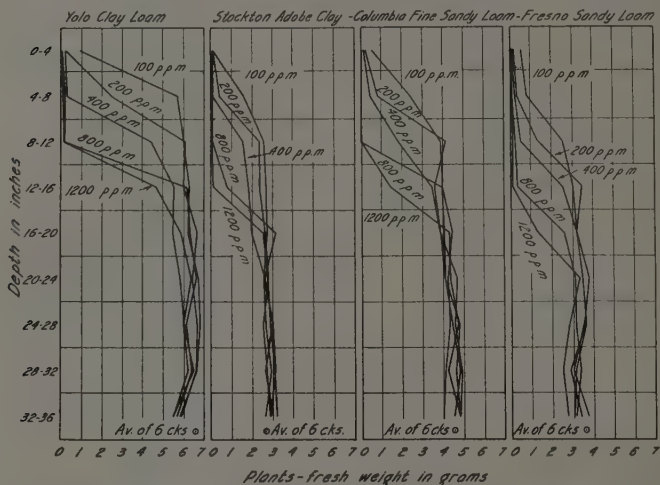 Yolo Clay Loam Stockton Adobe Clay - Columbia Fine Sandy Loam - Fresno Sandy Loam
Depth in inches
0-4
4-8
8-12
12-16
16-20
20-24
24-28
28-32
32-36
100 ppm
200 ppm
400 ppm
800 ppm
1200 ppm
Av. of 6 cks
100 ppm
200 ppm
400 ppm
800 ppm
1200 ppm
Av. of 6 cks.
100 ppm.
200 ppm
400 ppm
800 ppm
1200 ppm
Av. of 6 cks
100 ppm
200 ppm
400 ppm
800 ppm
1200 ppm
Av. of 6 cks
0 1 2 3 4 5 6 7 0 1 2 3 4 5 6 7 0 1 2 3 4 5 6 7 0 1 2 3 4 5 6 7
Plants - fresh weight in grams